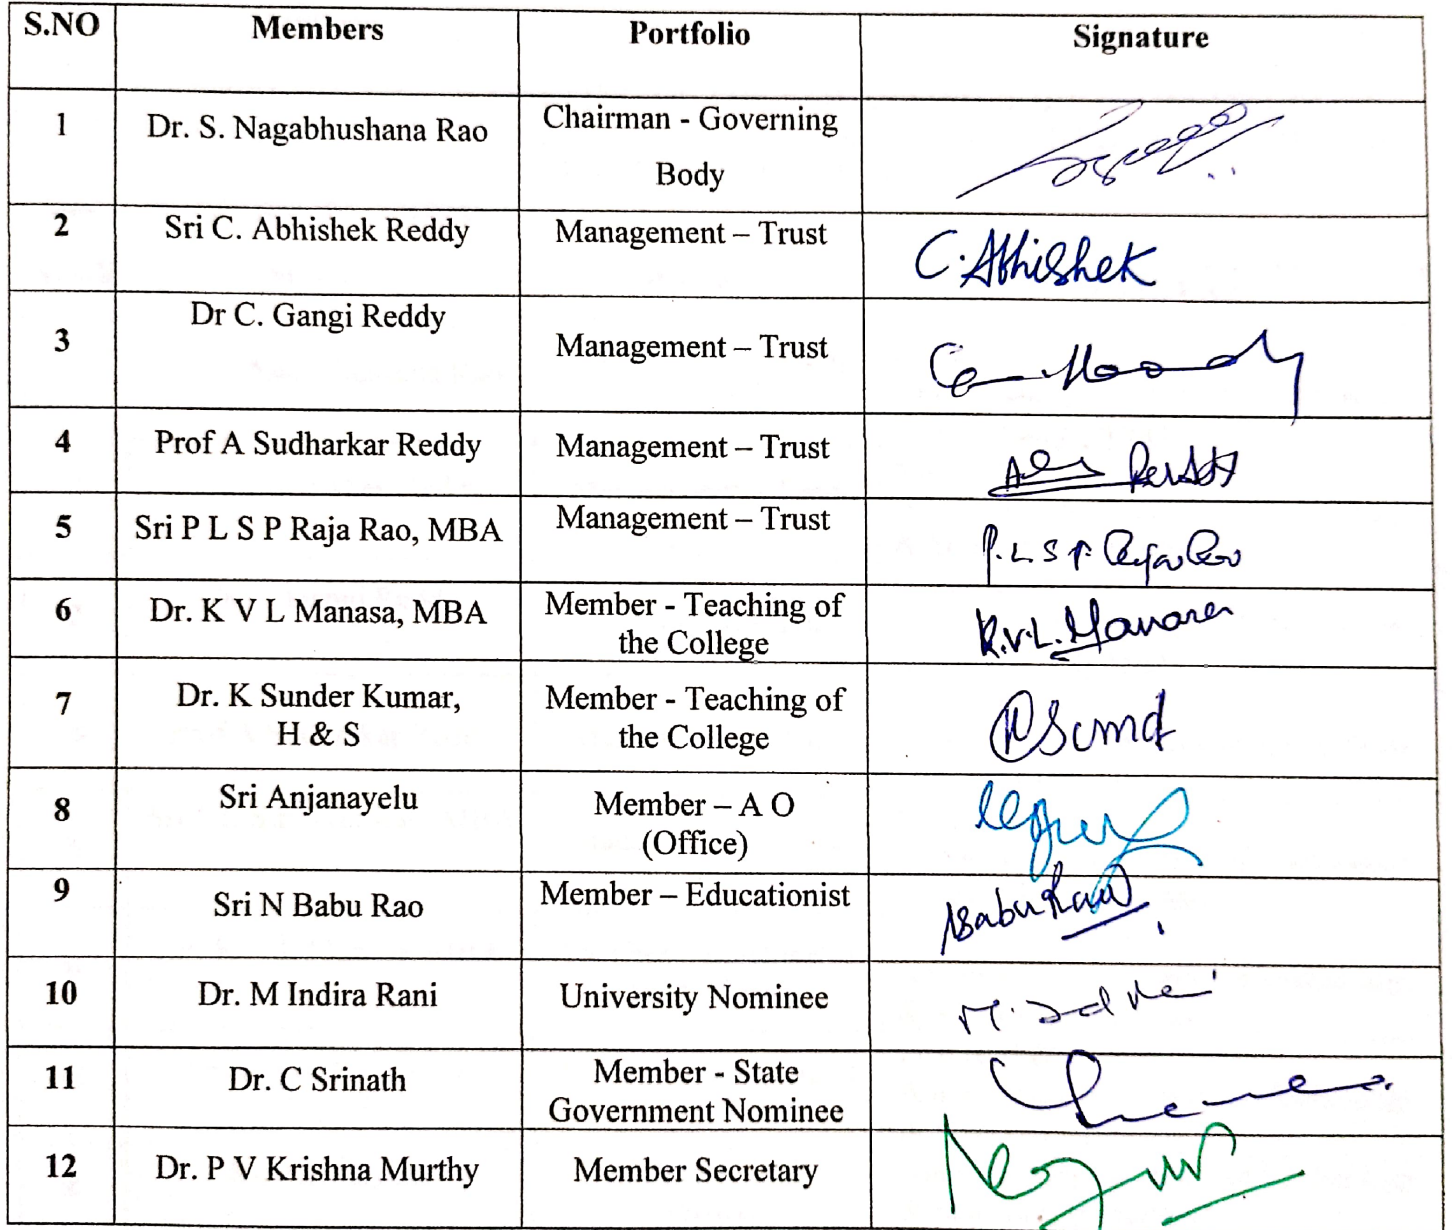 S.NO Members Portfolio Signature
1 Dr. S. Nagabhushana Rao Chairman - Governing
Body
2 Sri C. Abhishek Reddy Management – Trust C. Abhishek
3 Dr C. Gangi Reddy Management – Trust
4 Prof A Sudharkar Reddy Management – Trust
5 Sri P L S P Raja Rao, MBA Management – Trust P.L S P. Raja Rao
6 Dr. K V L Manasa, MBA Member - Teaching of
the College K.V.L. Manasa
7 Dr. K Sunder Kumar,
H & S Member - Teaching of
the College
8 Sri Anjanayelu Member – A O
(Office)
9 Sri N Babu Rao Member – Educationist NBabu Rao
10 Dr. M Indira Rani University Nominee
11 Dr. C Srinath Member - State
Government Nominee
12 Dr. P V Krishna Murthy Member Secretary